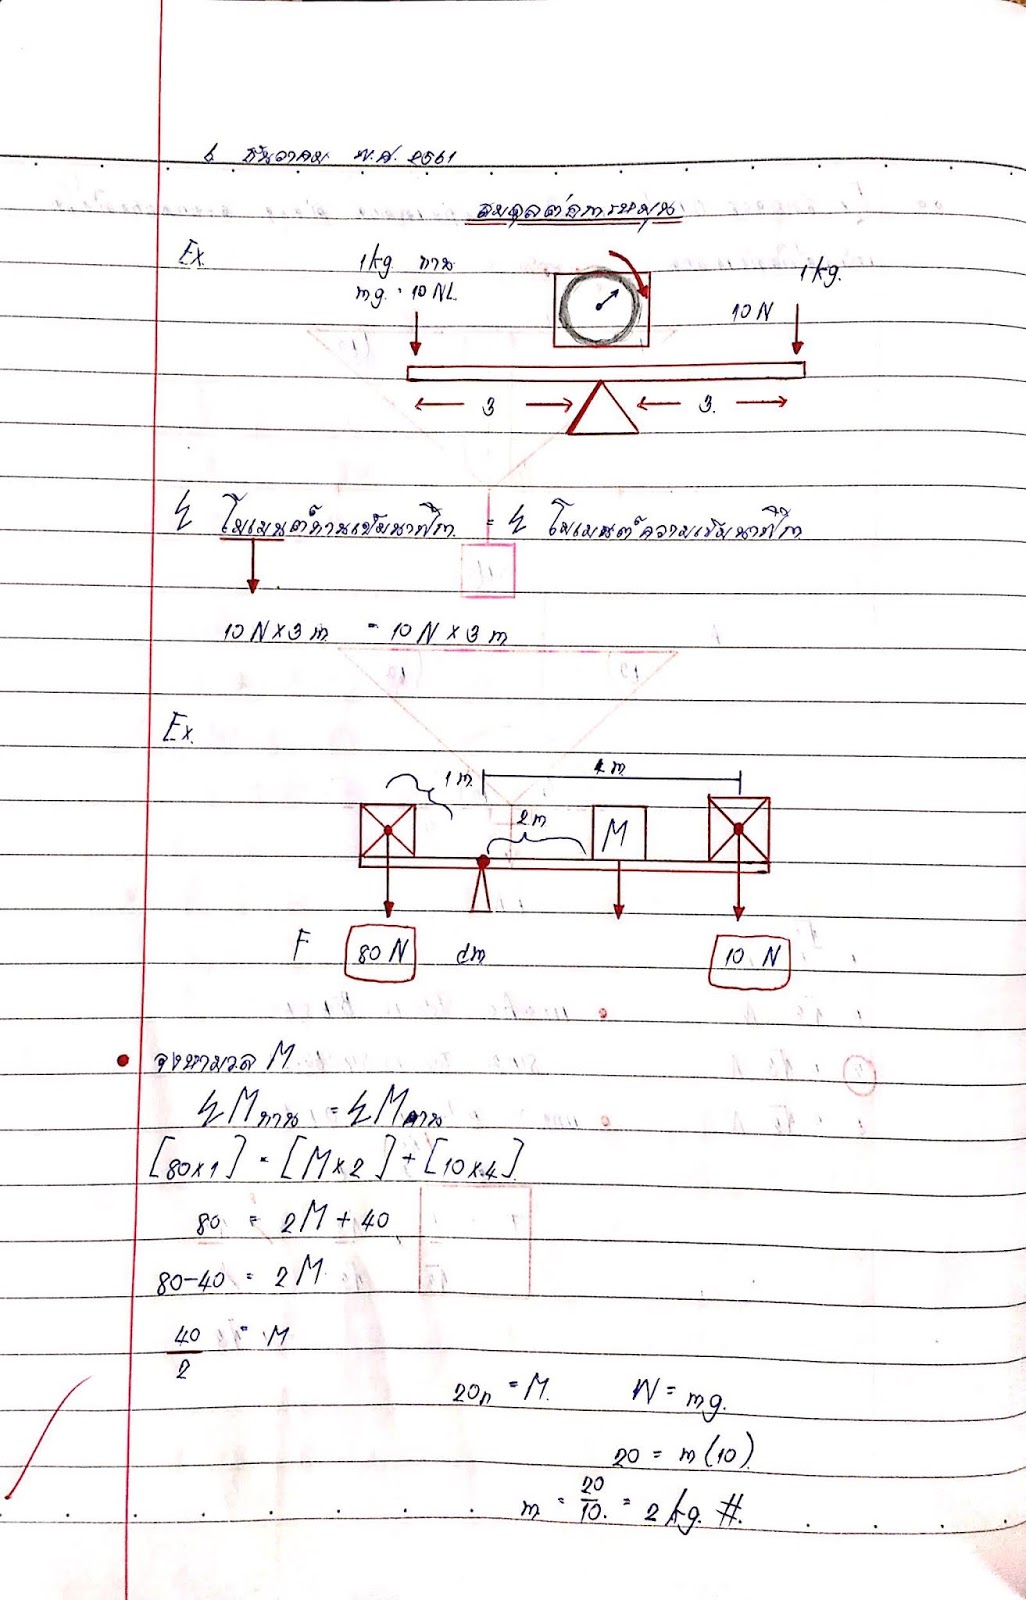 6 ธันวาคม พ.ศ. 2561
สมดุลต่อการหมุน
Ex.
1kg. ทวน
mg. = 10 N
1kg.
10 N
3 3.
Σ โมเมนต์ทวนเข็มนาฬิกา = Σ โมเมนต์ตามเข็มนาฬิกา
10 N x 3 m = 10 N x 3 m
Ex.
1 m. 4 m.
2m
M
F 80 N dm 10 N
จงหามวล M
ΣMทวน = ΣMตาม
[80x1] = [Mx2] + [10x4]
80 = 2M + 40
80-40 = 2M
40/2 = M
20n = M. W = mg.
20 = m(10)
m = 20/10. = 2 kg. #.